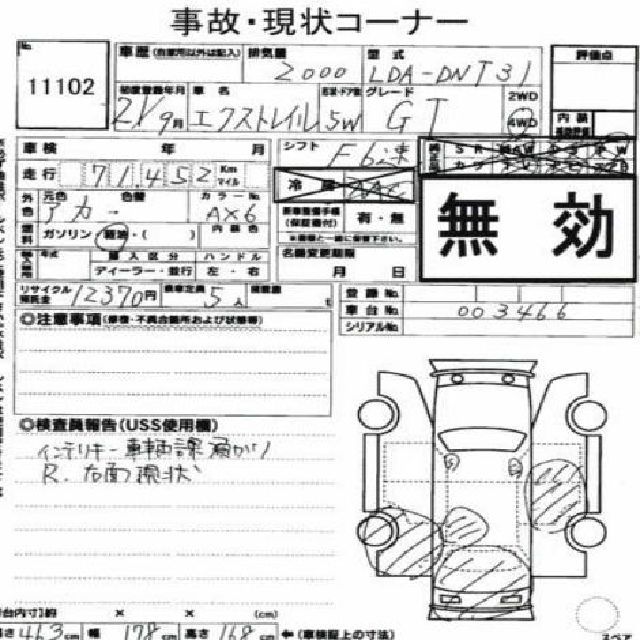 事故・現状コーナー
No. 11102
車歴 (自家用以外は記入) 排気量 2000 型式 LDA-DNT31 評価点
初度登録年月 21/9月 車名 エクストレイル 形状・ドア数 5W グレード GT 2WD 4WD 内装
車検 年 月 シフト F6速
走行 71,452 Km マイル 冷房 AAC
外色 元色 アカ 色替 カラーNo. AX6 有・無 無効
燃料 ガソリン・軽油・( ) 内装色 ※書類と一緒に保管下さい。
輸入区分 ハンドル 名義変更期限
ディーラー・並行 左・右 月 日
リサイクル預託金 12370円 乗車定員 5人 積載量 t 登録No.
◎注意事項(修復・不具合箇所および状態等) 車台No. 003466
シリアルNo.
◎検査員報告(USS使用欄)
インテリキー車輌課渡かり
R. 右面現状
(cm)
463cm 幅 178cm 高さ 168cm ←(車検証上の寸法)